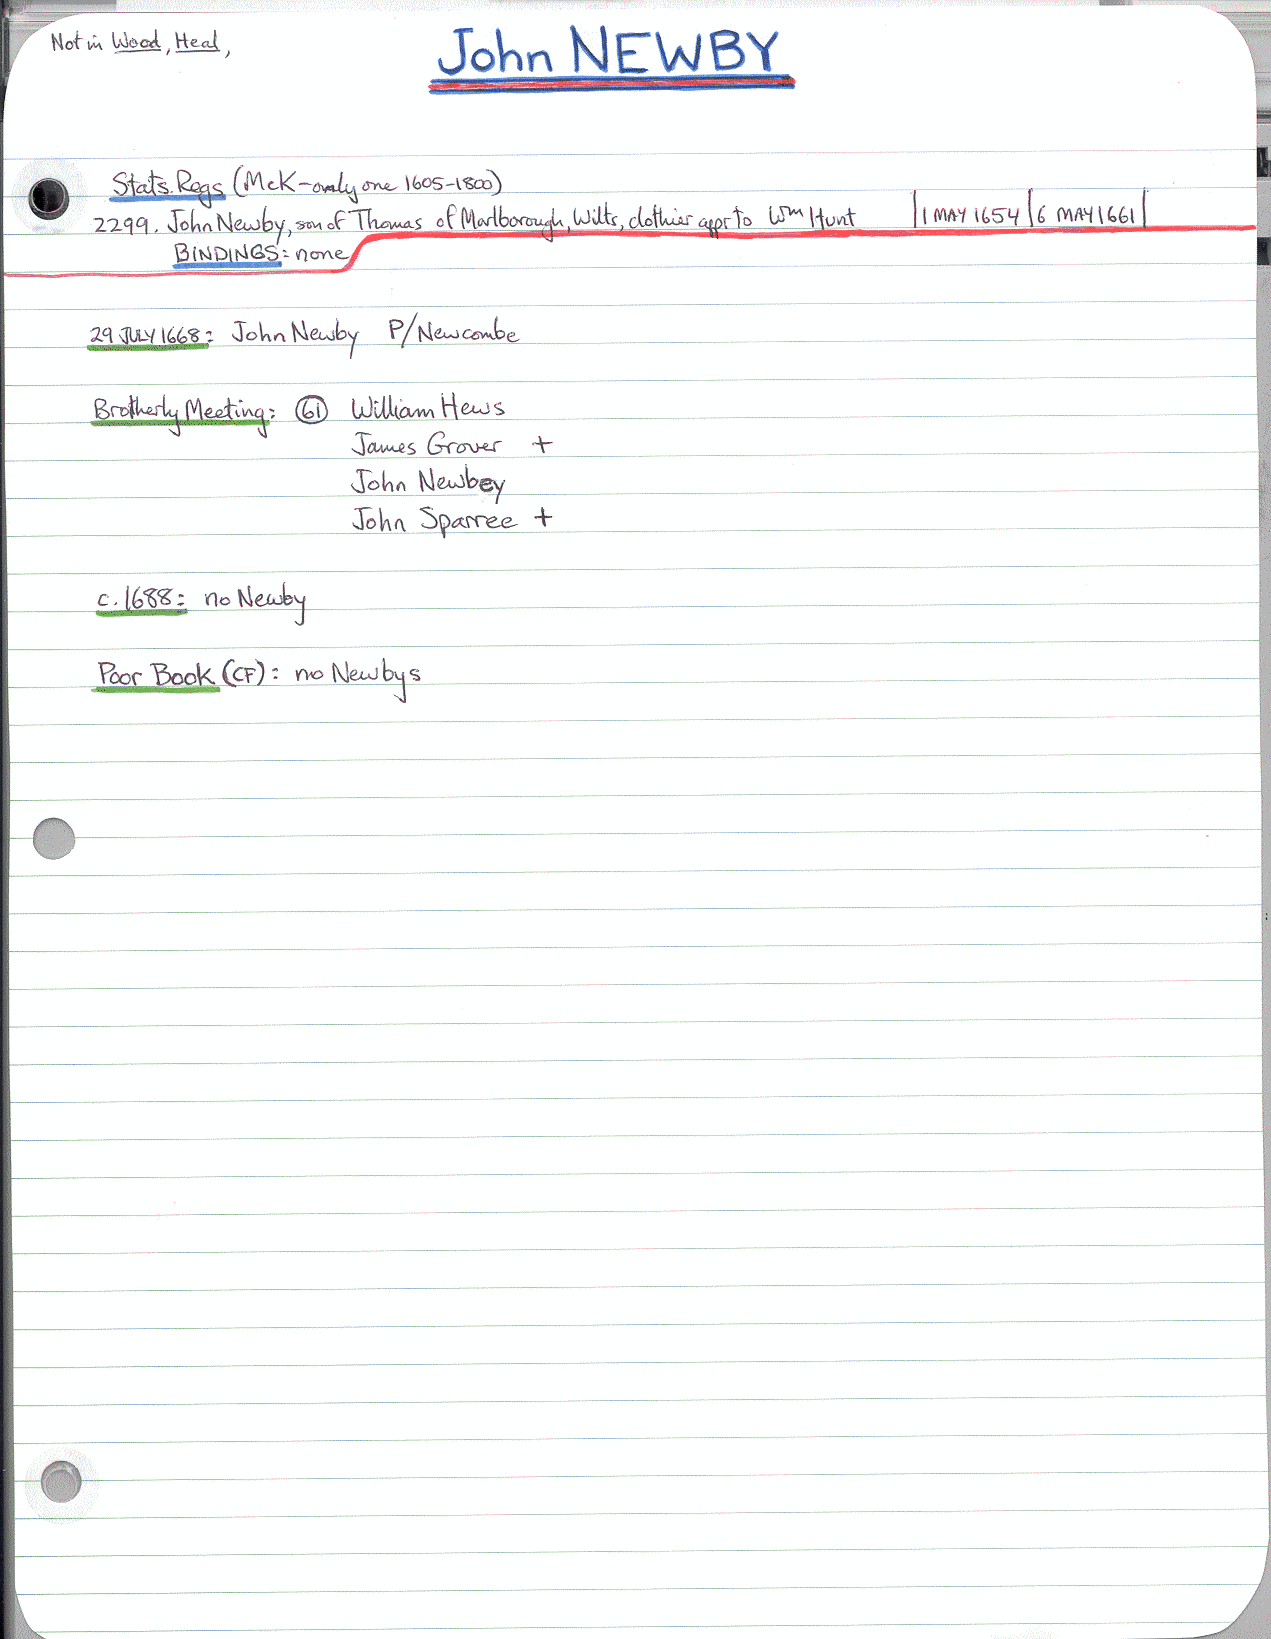 Not in Wood, Heal,
John NEWBY
Stats. Regs (McK-only one 1605-1800)
2299. John Newby, son of Thomas of Marlborough, Wilts, clothier appr to Wm Hunt | 1 MAY 1654 | 6 MAY 1661 |
BINDINGS: none
29 JULY 1668: John Newby P/Newcombe
Brotherly Meeting: 61 William Hews
James Grover +
John Newbey
John Sparree +
c. 1688: no Newby
Poor Book (CF): no Newbys